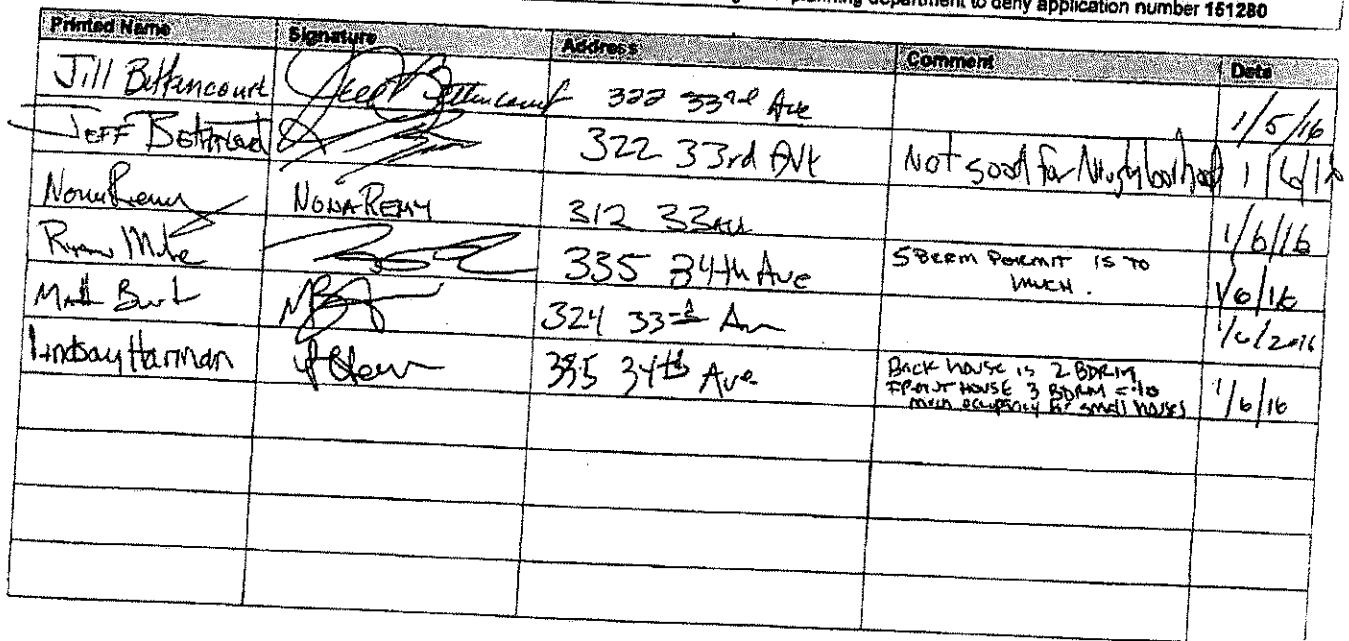 planning department to deny application number 151280
Printed Name Signature Address Comment Date
Jill Bettencourt Jill Bettencourt 322 33rd Ave 1/5/16
Jeff 322 33rd Ave Not good for Neighborhood 1/6/16
Nona Remy NONA REMY 312 33rd 1/6/16
Ryan 335 34th Ave 5 BERM PERMIT IS TO
MUCH. 1/6/16
Matt 324 33rd Av 1/6/2016
Lindsay Harman 335 34th Ave BACK HOUSE IS 2 BDRM
FRONT HOUSE 3 BDRM = 10
much occupancy for small houses 1/6/16